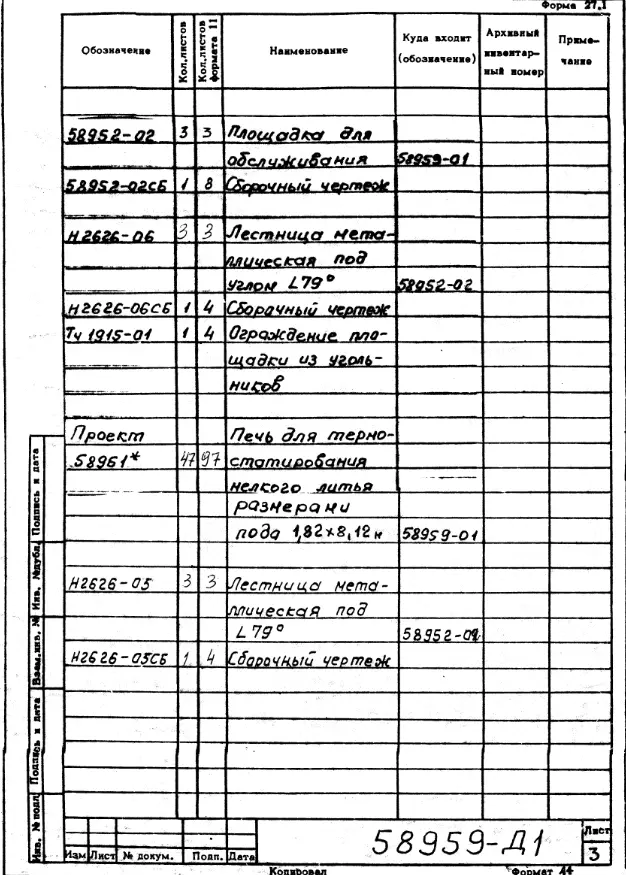 Форма 27.1
Обозначение Кол.листов Кол.листов формата 11 Наименование Куда входит (обозначение) Архивный инвентар- ный номер Приме- чание
58952-02 3 3 Площадка для
обслуживания 58959-01
58952-02СБ 1 8 Сборочный чертеж
Н2626-06 3 3 Лестница мета-
ллическая под
углом L79° 58952-02
Н2626-06СБ 1 4 Сборочный чертеж
Тч 1915-01 1 4 Ограждение пло-
щадки из уголь-
ников
Проект Печь для термо-
58961* 47 97 статирования
мелкого литья
размерами
пода 1,82х8,12м 58959-01
Н2626-05 3 3 Лестница мета-
ллическая под
L 79° 58952-02
Н2626-05СБ 1 4 Сборочный чертеж
Инв. № подл. Подпись и дата Взам.инв. № Инв. №дубл. Подпись и дата
Изм Лист № докум. Подп. Дата
58959-Д1
Лист
3
Копировал Формат А4